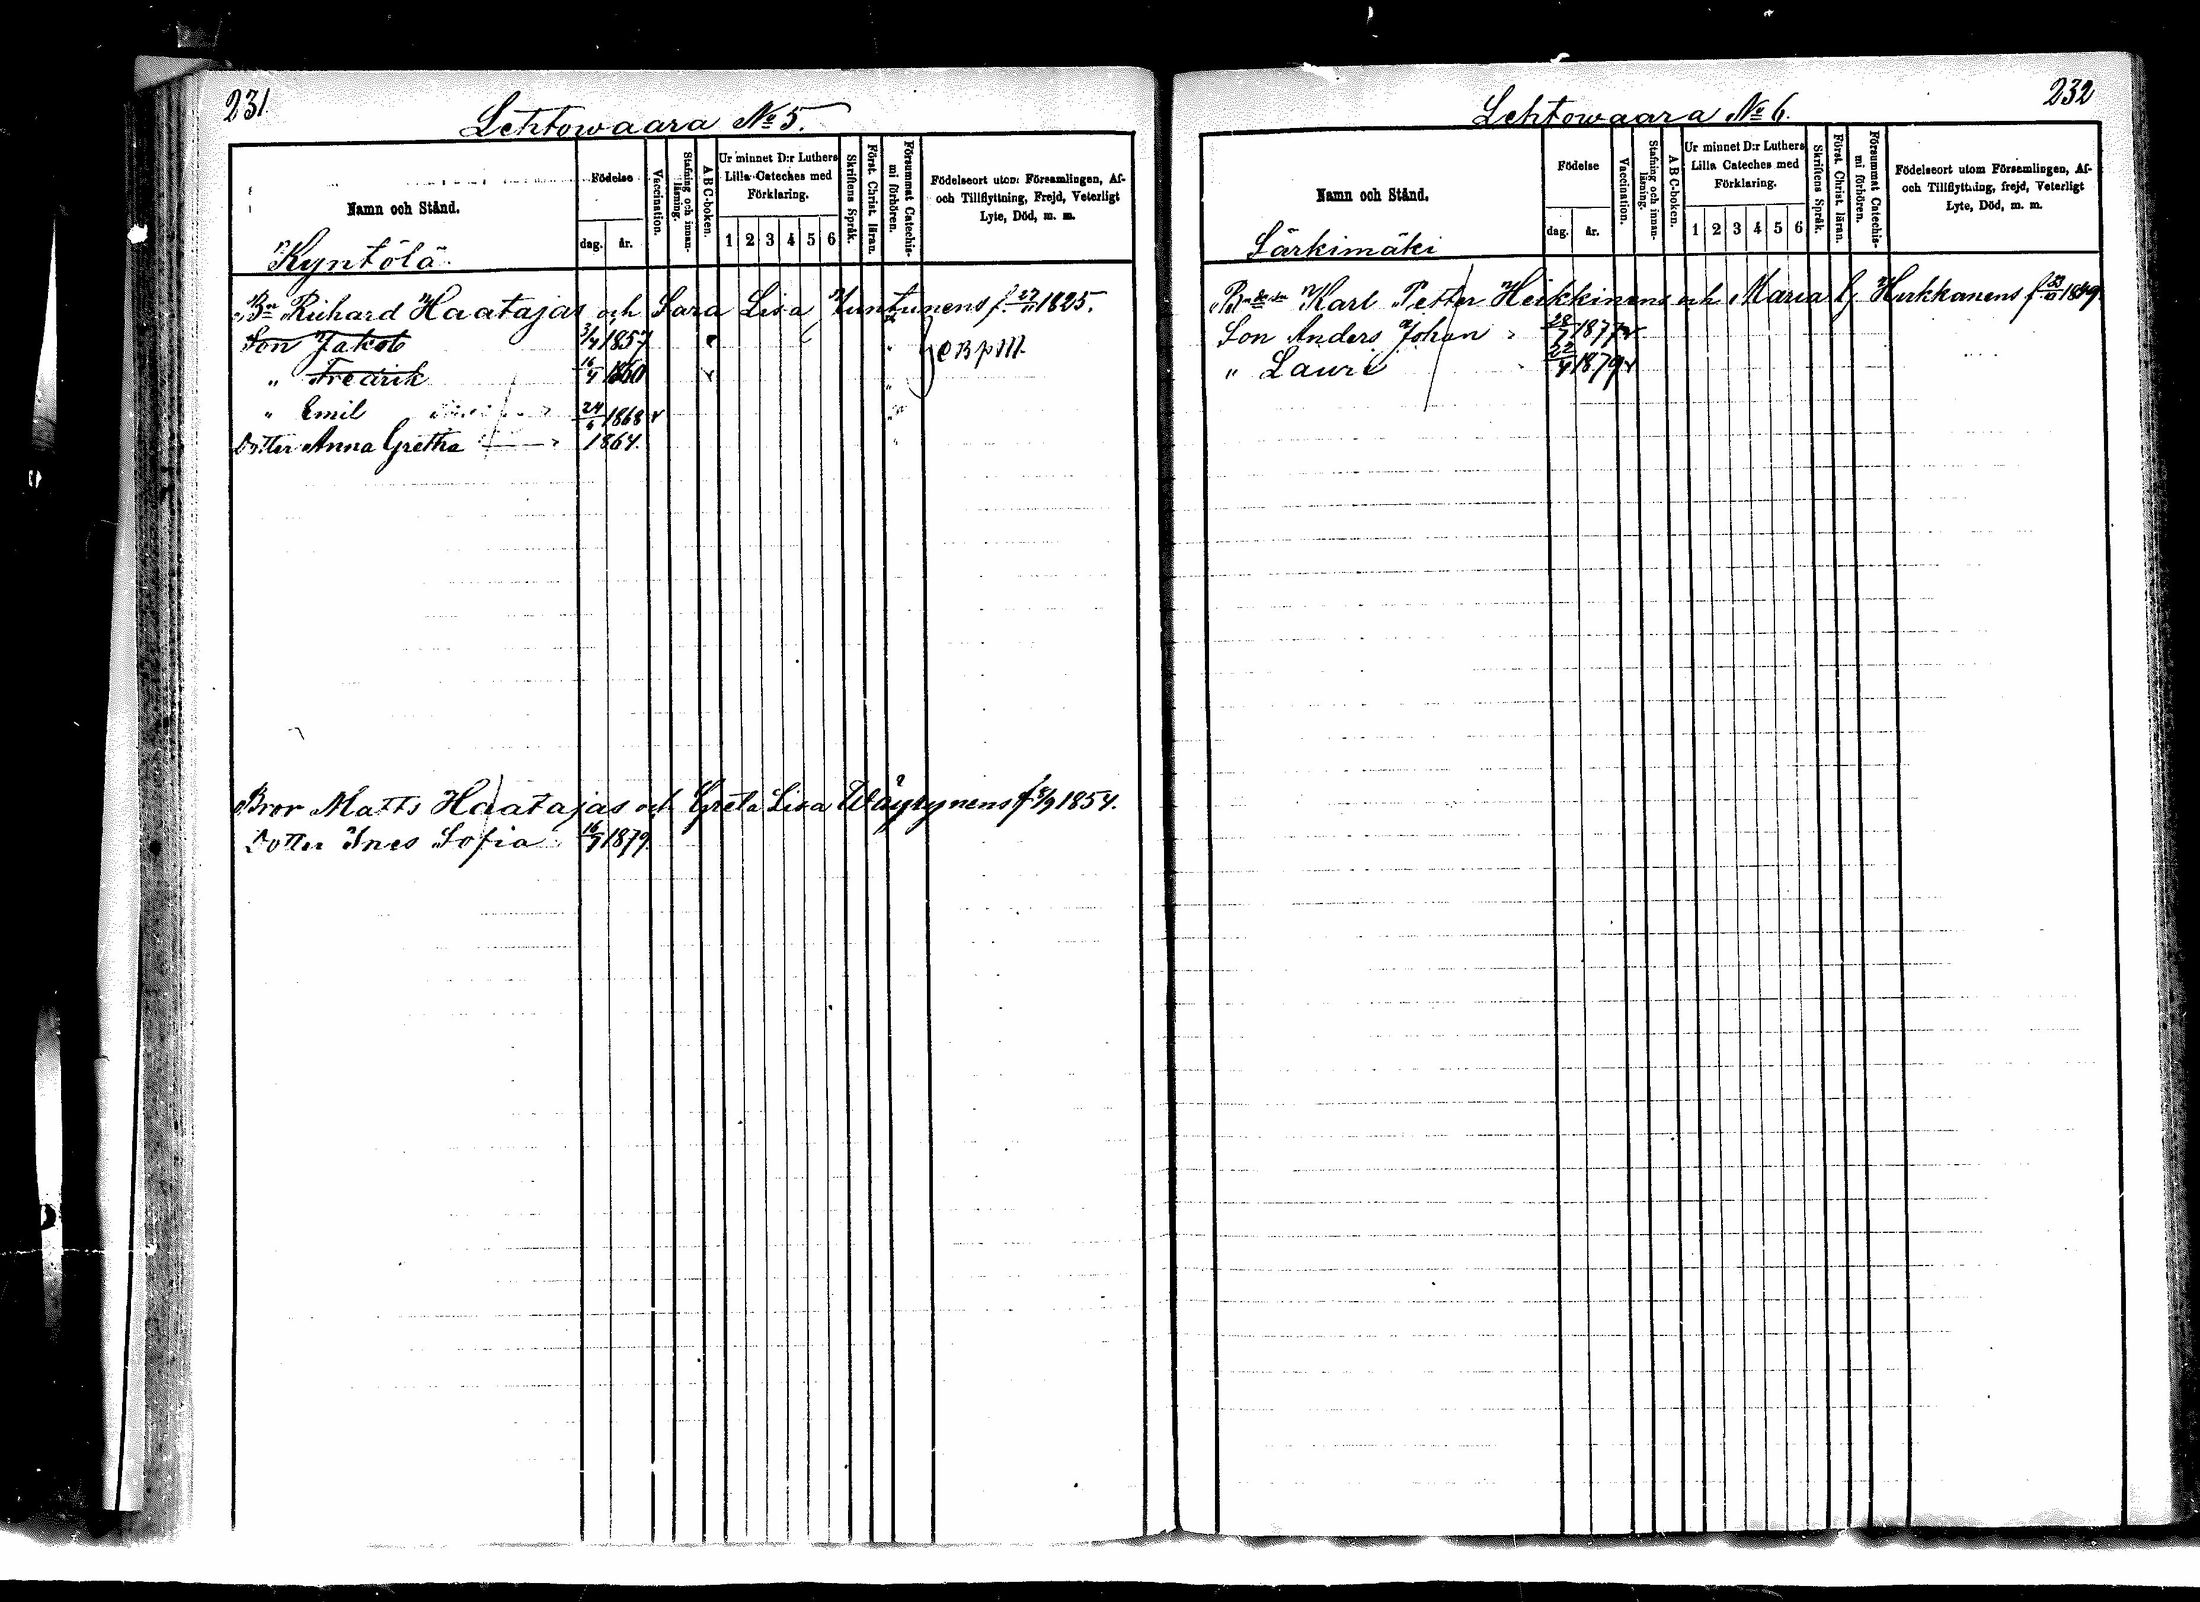 231.
Lehtowaara No 5.
Namn och Stånd.
Födelse
dag. år.
Vaccination.
Stafning och innan-läsning.
A B C-boken.
Ur minnet D:r Luthers Lilla Cateches med Förklaring.
1 2 3 4 5 6
Skriftens Språk.
Först. Christ. läran.
Försummat Catechis-mi förhören.
Födelseort utom Församlingen, Af- och Tillflyttning, Frejd, Veterligt Lyte, Död, m. m.
Kyntölä
Bn Richard Haatajas och Sara Lisa Juntunens f. 27/11 1825.
Son Jakob 3/4 1857
" Fredrik 16/4 1860
" Emil 24/6 1868
Dotter Anna Gretha 1864.
Bror Matts Haatajas och Greta Lisa Wäyrynens f. 5/9 1854.
Dotter Ines Sofia 16/9 1879.
232
Lehtowaara No 6.
Namn och Stånd.
Födelse
dag. år.
Vaccination.
Stafning och innan-läsning.
A B C-boken.
Ur minnet D:r Luthers Lilla Cateches med Förklaring.
1 2 3 4 5 6
Skriftens Språk.
Först. Christ. läran.
Försummat Catechis-mi förhören.
Födelseort utom Församlingen, Af- och Tillflyttning, frejd, Veterligt Lyte, Död, m. m.
Särkimäki
Karl Petter Heikkinens och Maria f. Hirkkanens
Son Anders Johan 28/7 1877
" Lauri 22/4 1879